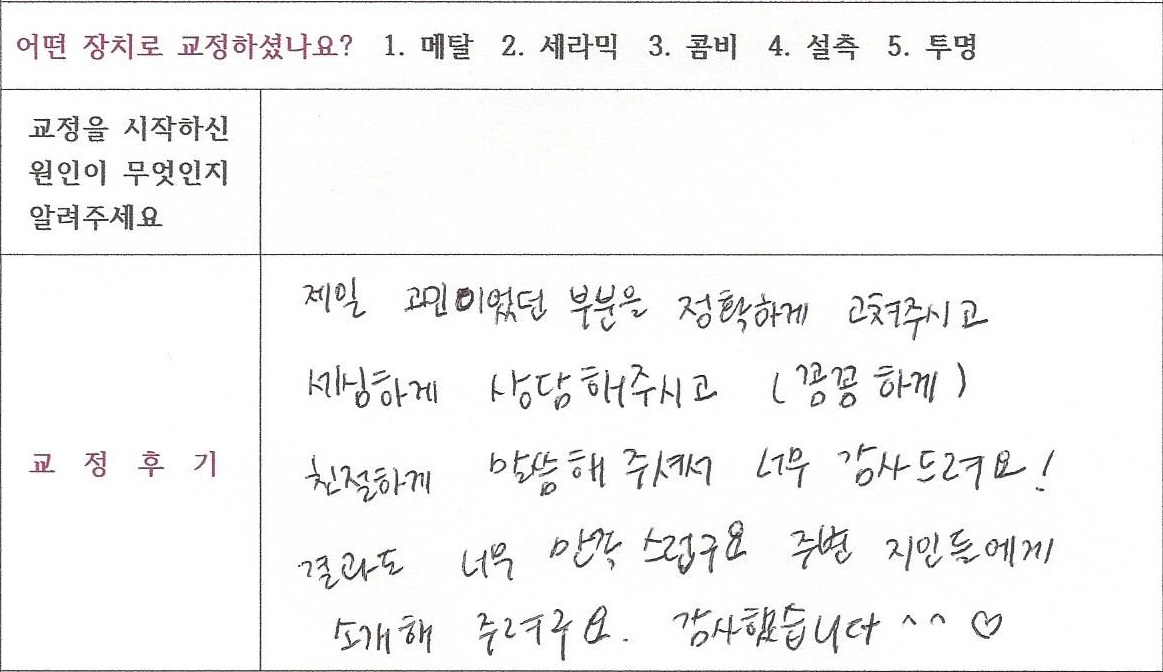 어떤 장치로 교정하셨나요? 1. 메탈 2. 세라믹 3. 콤비 4. 설측 5. 투명
교정을 시작하신
원인이 무엇인지
알려주세요
교 정 후 기
제일 고민이었던 부분을 정확하게 고쳐주시고
세심하게 상담해주시고 (꽁꽁하게)
친절하게 말씀해 주셔서 너무 감사드려요!
결과도 너무 만족스럽구요 주변 지인들에게
소개해 주려구요. 감사했습니다 ^^ ♡